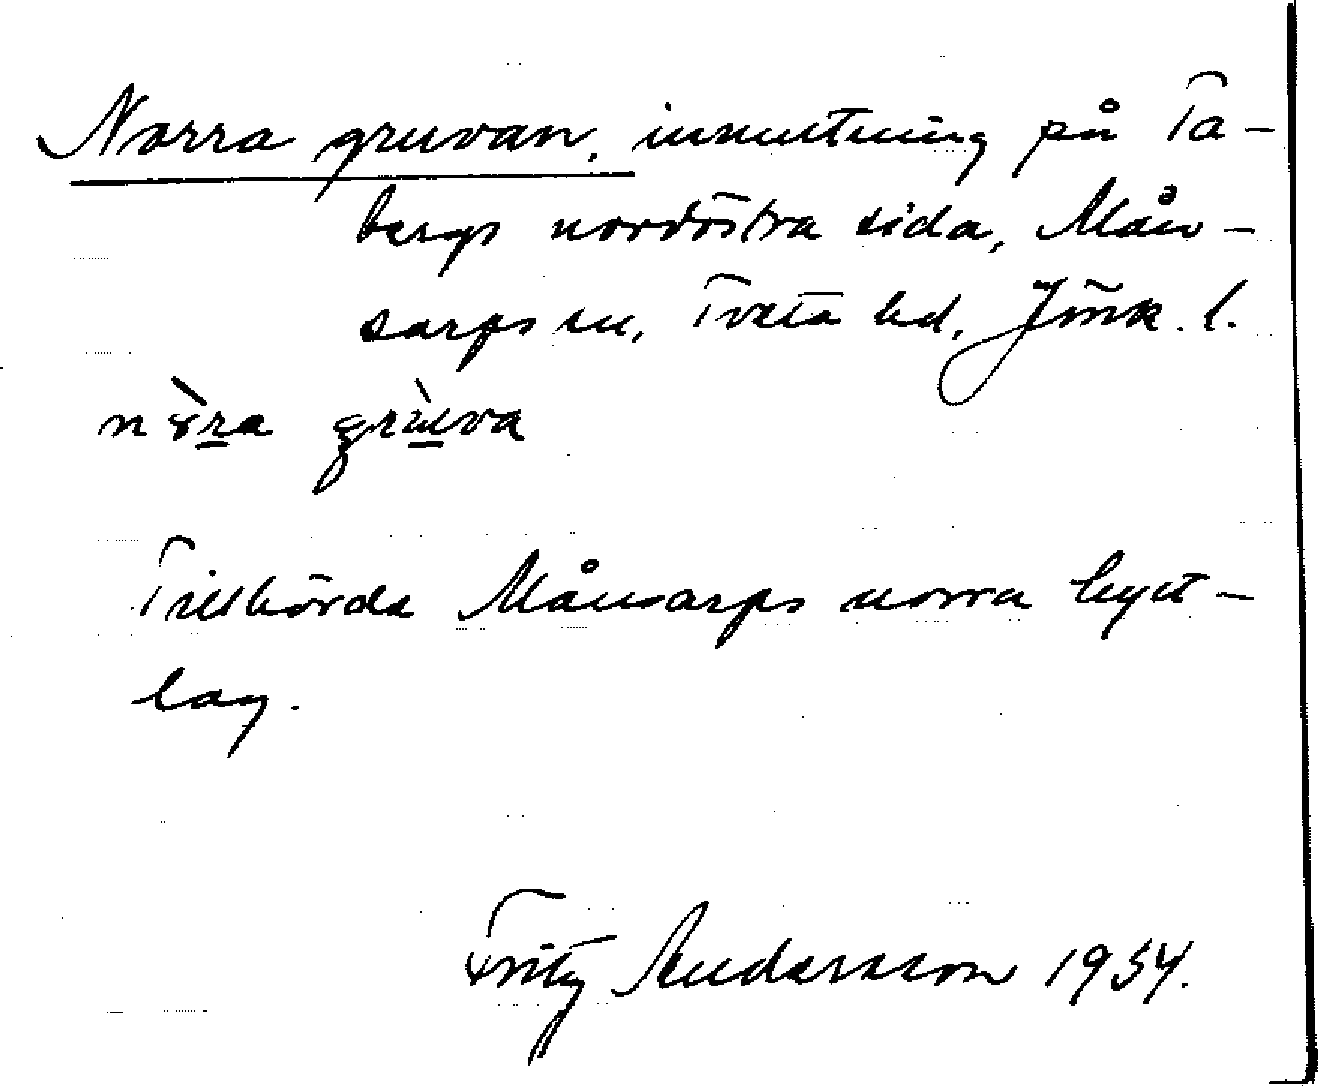 Norra gruvan, inmutning på Ta-
bergs nordöstra sida, Mån-
sarps sn, Tveta hd, Jönk. l.
nōra gruva
Tillhörde Månsarps norra hytt-
lag.
Fritz Andersson 1934.